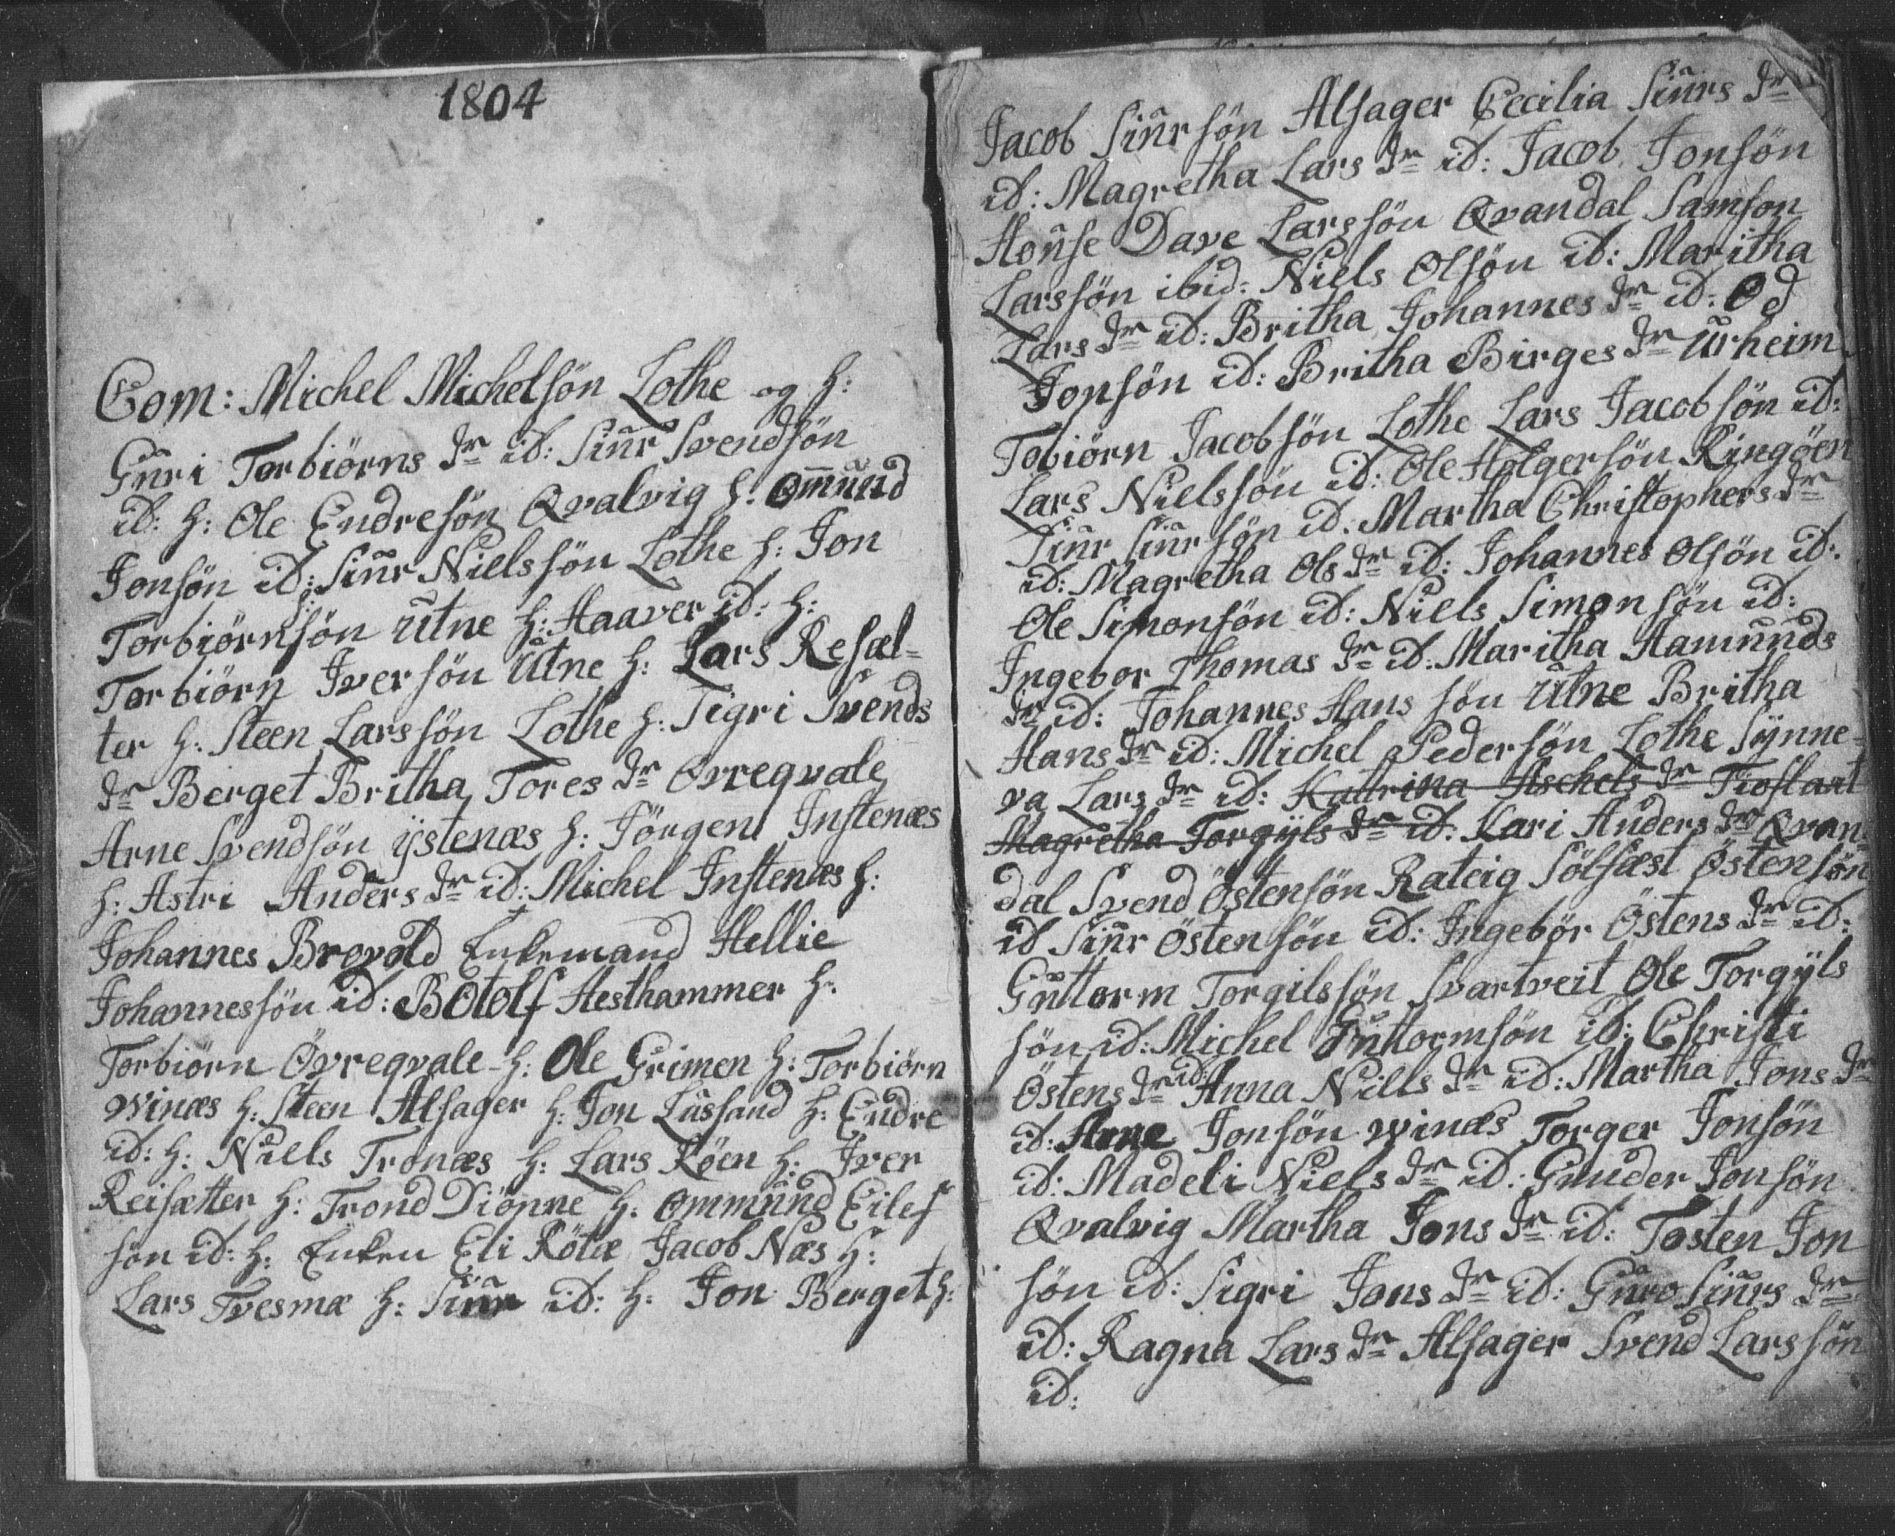 1804
Com: Michel Michelsön Lothe og h:
Guri Torbiörns dr id: Siur Svendsön
id: h: Ole Endresön Qvalvig h: Om̅und
Jonsön id: Siur Nielssön Lothe h: Jon
Torbiörnsön Utne h: Haaver id: h:
Torbiörn Iversön Utne h: Lars Resæl-
ter h: Steen Larssön Lothe h: Sigri Svends
dr Berget Britha Tores dr Ovreqvale
Arne Svendsön ÿstenæs h: Jörgen Instenæs
h: Astri Anders dr id: Michel Instenæs h:
Johannes Brovold Enkemand Hellie
Johannessön id: Botolf Hesthammer h:
Torbiörn Övreqvale h: Ole Grimen h: Torbiörn
Winæs h: Steen Alsager h: Jon Lussand h: Endre
id: h: Niels Tronæs h: Lars Röen h: Iver
Reisætter h: Trond Diönne h: Ommund Eilef
sön id: h: Enken Eli Röte Jacob Næs h:
Lars Tvesmæ h: Siur id: h: Jon Berget h:
Jacob Siursön Alsager Cecilia Siurs dr
id: Magretha Lars dr id: Jacob Jonsön
House Dave Larssön Qvandal Samson
Larssön ibid: Niels Olsön id: Maritha
Lars dr id: Britha Johannes dr id: Od
Jonsön id: Britha Birges dr Urheim
Tobiörn Jacobsön Lothe Lars Jacobsön id:
Lars Nielssön id: Ole Holgersön Ringöen
Siur Siursön id: Martha Christophers dr
id: Magretha Ols dr id: Johannes Olsön id:
Ole Simonsön id: Niels Simonsön id:
Ingebor Thomas dr id: Maritha Hamunds
dr id: Johannes Hans sön Utne Britha
Hans dr id: Michel Pedersön Lothe Sÿnne-
va Lars dr id: Kattrina Aschels dr Tioflaat
Magretha Torgÿls dr id: Kari Anders dr Qvan-
dal Svend Östensön Rateig Sölfæst Östensön
id Siur Östensön id: Ingebör Östens dr id:
Guttorm Torgilssön Svartveit Ole Torgÿls
sön id: Michel Guttormsön id: Christi
Östens dr id: Anna Nills dr id: Martha Jons dr
id: Arne Jonsön Winæs Torger Jonsön
id: Madeli Niels dr id: Gunder Jonsön
Qvalvig Martha Jons dr id: Tosten Jon
sön id: Sigri Jons dr id: Guro Siurs dr
id: Ragna Lars dr Alsager Svend Larssön
id: